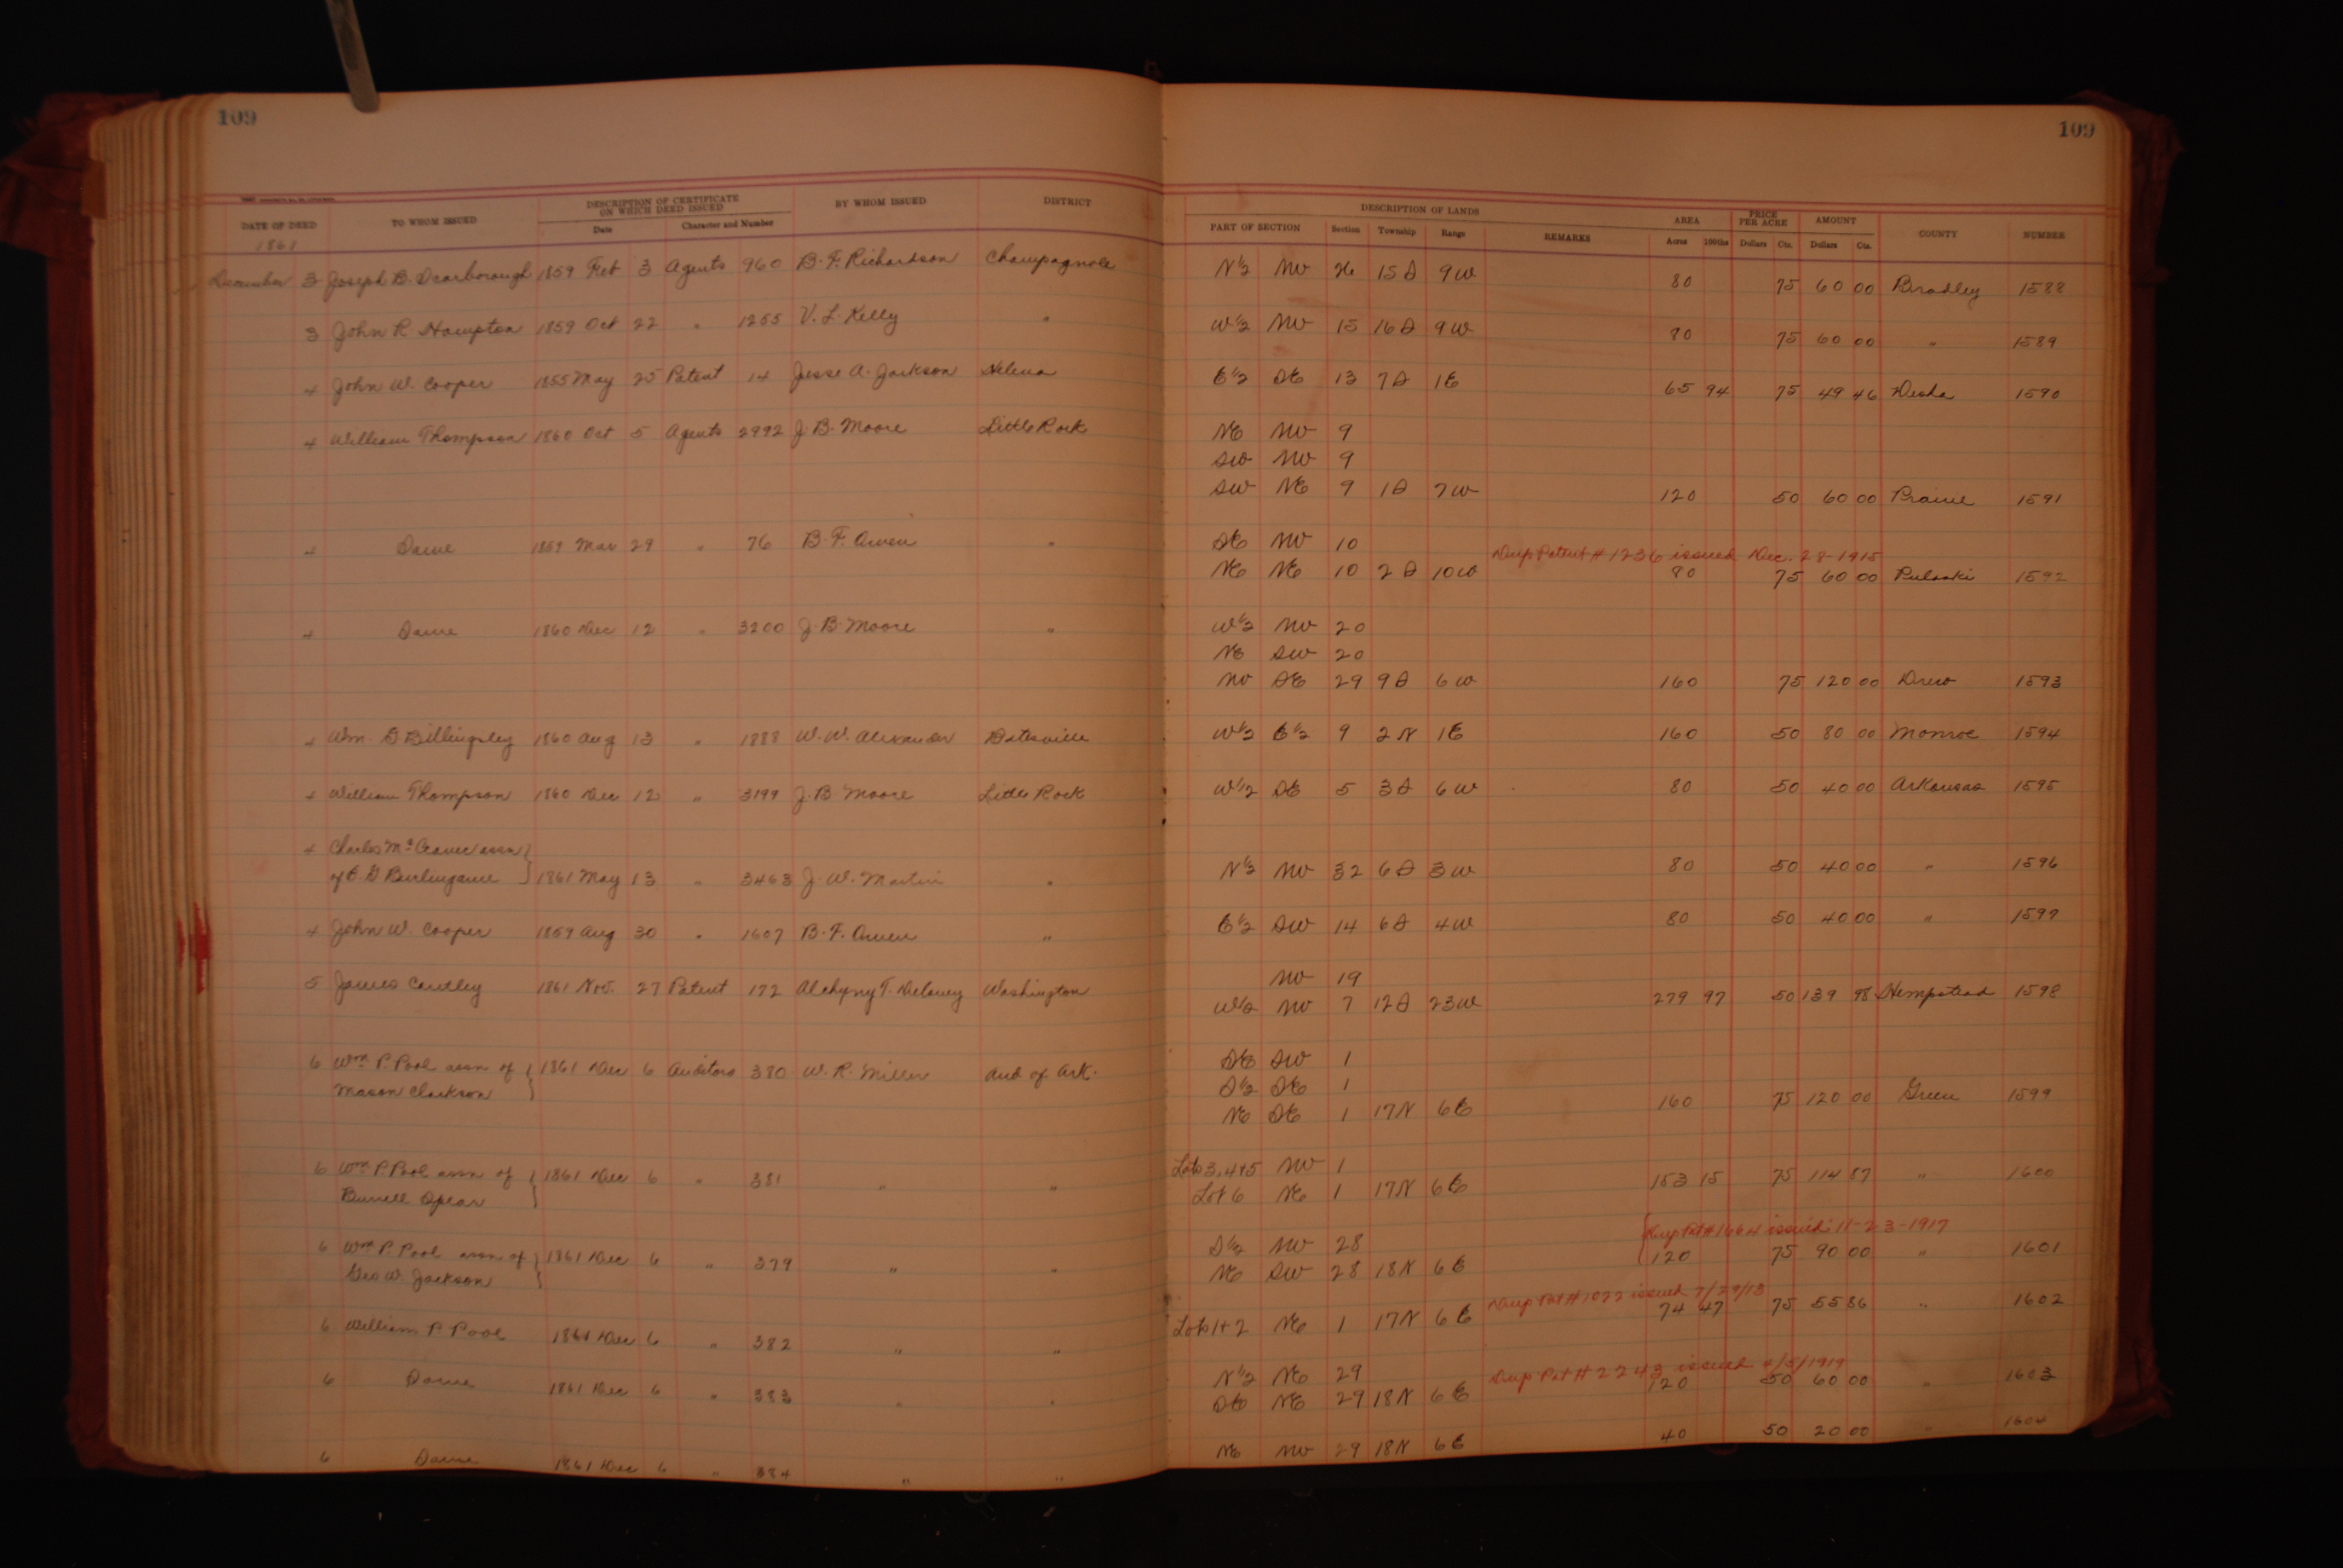 109
109
DATE OF DEED TO WHOM ISSUED DESCRIPTION OF CERTIFICATE ON WHICH DEED ISSUED BY WHOM ISSUED DISTRICT DESCRIPTION OF LANDS AREA PRICE PER ACRE AMOUNT COUNTY NUMBER
Date Character and Number PART OF SECTION Section Township Range REMARKS Acres 100ths Dollars Cts. Dollars Cts.
1861
December 3 Joseph B. Scarborough 1859 Feb 3 Agents 960 B. F. Richardson Champagnole N½ NW 26 15 S 9 W 80 75 60 00 Bradley 1588
3 John R Hampton 1859 Oct 22 " 1255 V. L. Kelly " W½ NW 15 16 S 9 W 80 75 60 00 " 1589
4 John W. Cooper 1855 May 25 Patent 14 Jesse A. Jackson Helena E½ SE 13 7 S 1 E 65 94 75 49 46 Desha 1590
4 William Thompson 1860 Oct 5 Agents 2992 J. B. Moore Little Rock NE NW 9
SW NW 9
SW NE 9 1 S 7 W 120 50 60 00 Prairie 1591
4 Same 1859 Mar 29 " 76 B. F. Owen " SE NW 10
Dup Patent # 1236 issued Dec. 28-1915
NE NE 10 2 S 10 W 80 75 60 00 Pulaski 1592
4 Same 1860 Dec 12 " 3200 J. B. Moore " W½ NW 20
NE SW 20
NW SE 29 9 S 6 W 160 75 120 00 Drew 1593
4 Wm. G Billingsley 1860 Aug 13 " 1888 W. W. Alexander Batesville W½ E½ 9 2 N 1 E 160 50 80 00 Monroe 1594
4 William Thompson 1860 Dec 12 " 3199 J. B Moore Little Rock W½ SE 5 3 S 6 W 80 50 40 00 Arkansas 1595
4 Charles Mc assn
of E. G Burlingame 1861 May 13 " 3463 J. W. Martin " N½ NW 32 6 S 3 W 80 50 40 00 " 1596
4 John W. Cooper 1859 Aug 30 " 1607 B. F. Owen " E½ SW 14 6 S 4 W 80 50 40 00 " 1597
5 James 1861 Nov. 27 Patent 172 T. Delaney Washington NW 19
W½ NW 7 12 S 23 W 279 97 50 139 98 Hempstead 1598
6 Wm P. Pool assn of 1861 Dec 6 Auditors 380 W. R. Miller Aud of Ark. SE SW 1
Mason Clarkson S½ SE 1
NE SE 1 17 N 6 E 160 75 120 00 Green 1599
6 Wm P. Pool assn of 1861 Dec 6 " 381 " " Lots 3, 4 + 5 NW 1
Burrell Spear Lot 6 NE 1 17 N 6 E 153 15 75 114 87 " 1600
Dup Pat # 1664 issued 11-23-1917
6 Wm P. Pool assn of 1861 Dec 6 " 379 " " S½ NW 28
Geo W. Jackson NE SW 28 18 N 6 E 120 75 90 00 " 1601
Dup Pat # 1022 issued 7/29/13
6 William P. Pool 1861 Dec 6 " 382 " " Lots 1 + 2 NE 1 17 N 6 E 74 47 75 55 86 " 1602
Dup Pat # 2243 issued 4/5/1919
6 Same 1861 Dec 6 " 383 " " N½ NE 29
SE NE 29 18 N 6 E 120 50 60 00 " 1603
6 Same 1861 Dec 6 " 384 " " NE NW 29 18 N 6 E 40 50 20 00 " 1604